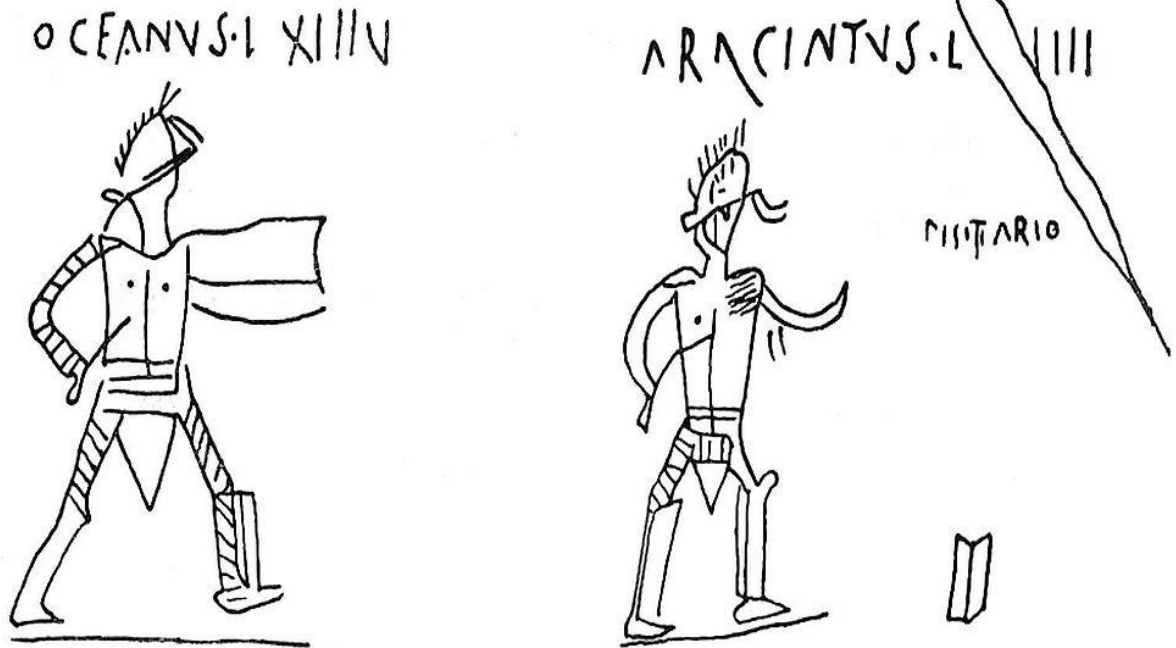 OCEANVS·L XIIIV
ARACINTVS·L IIII